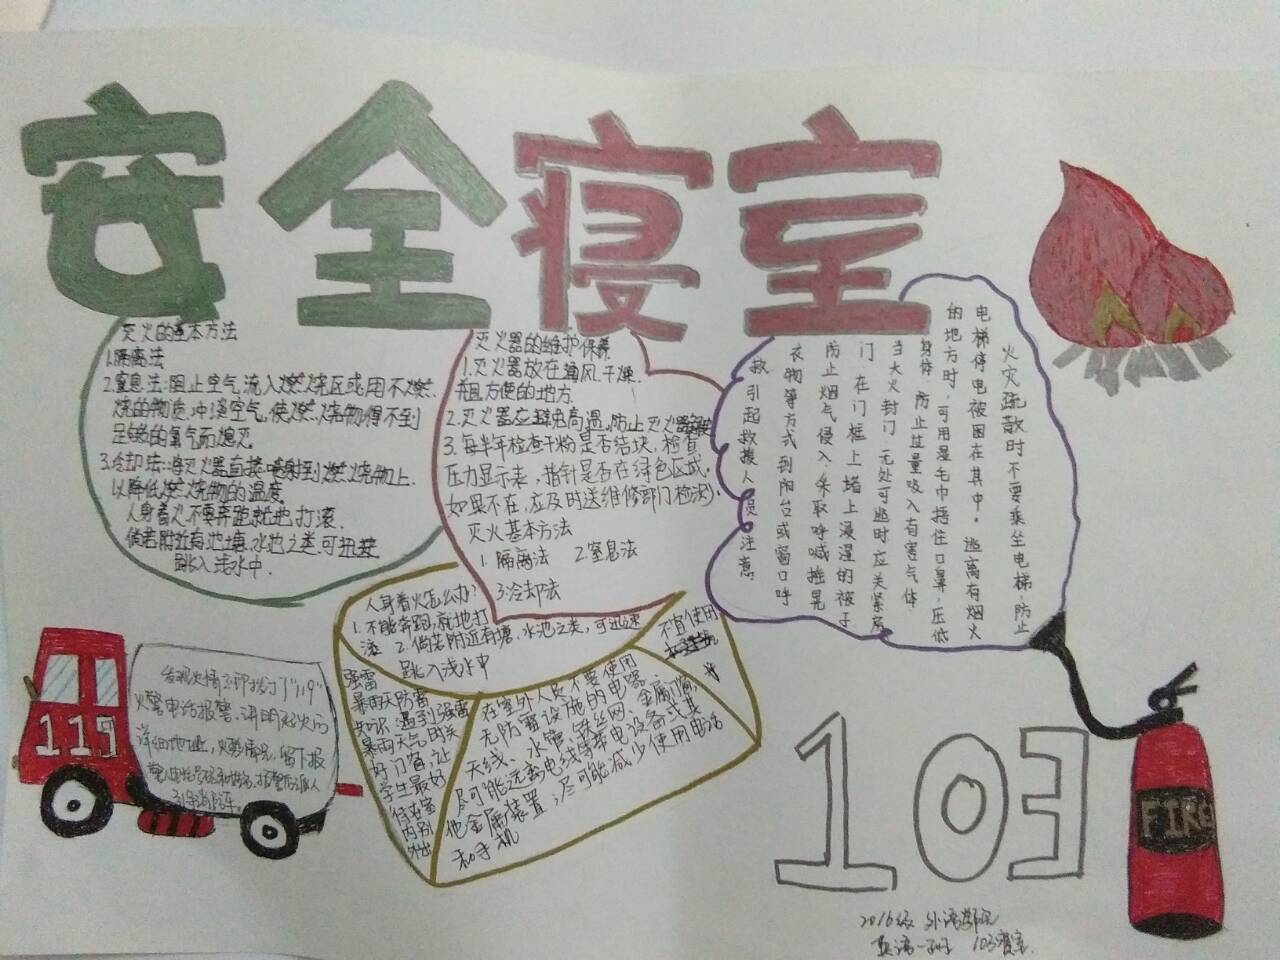 安全寝室
灭火的基本方法
1.隔离法
2.窒息法:阻止空气流入燃烧区或用不燃
烧的物质冲淡空气,使燃烧物得不到
足够的氧气而熄灭
3.冷却法:将灭火器直接喷射到燃烧物上.
以降低燃烧物的温度
人身着火不要奔跑就地打滚.
倘若附近有池塘、水池之类,可迅速
跳入浅水中.
灭火器的维护保养
1.灭火器放在通风、干燥、
并且方便的地方
2.灭火器应避免高温,防止灭火器
3.每半年检查干粉是否结块,检查
压力显示表,指针是否在绿色区域.
如果不在,应及时送维修部门检测.
灭火基本方法
1.隔离法 2窒息法
3冷却法
火灾疏散时不要乘坐电梯,防止
电梯停电被困在其中。逃离有烟火
的地方时,可用湿毛巾捂住口鼻,压低
身体,防止过量吸入有害气体
当大火封门,无处可逃时应关紧房
门,在门框上堵上浸湿的被子
防止烟气侵入,采取呼喊摇晃
衣物等方式到阳台或窗口呼
救,引起救援人员注意
人身着火怎么办?
1.不能奔跑,就地打
滚 2.倘若附近有塘、水池之类,可迅速
跳入浅水中
强雷
暴雨天防雷
知识:遇到强雷
暴雨天气,关
好门窗,让
学生最好
待在室
内别
外出
不宜使用
水
在室外人员不要使用
无防雷设施的电器、
天线、水管、铁丝网、金属门窗,
尽可能远离电线等带电设备或其
他金属装置,尽可能减少使用电话
和手机
119
发现火情立即拨打"119"
火警电话报警,讲明起火的
详细地址,火势情况,留下报
警人电话号码和姓名,报警后派人
引导消防车.
103
FIRE
2016级 外语学院
英语一班 103寝室